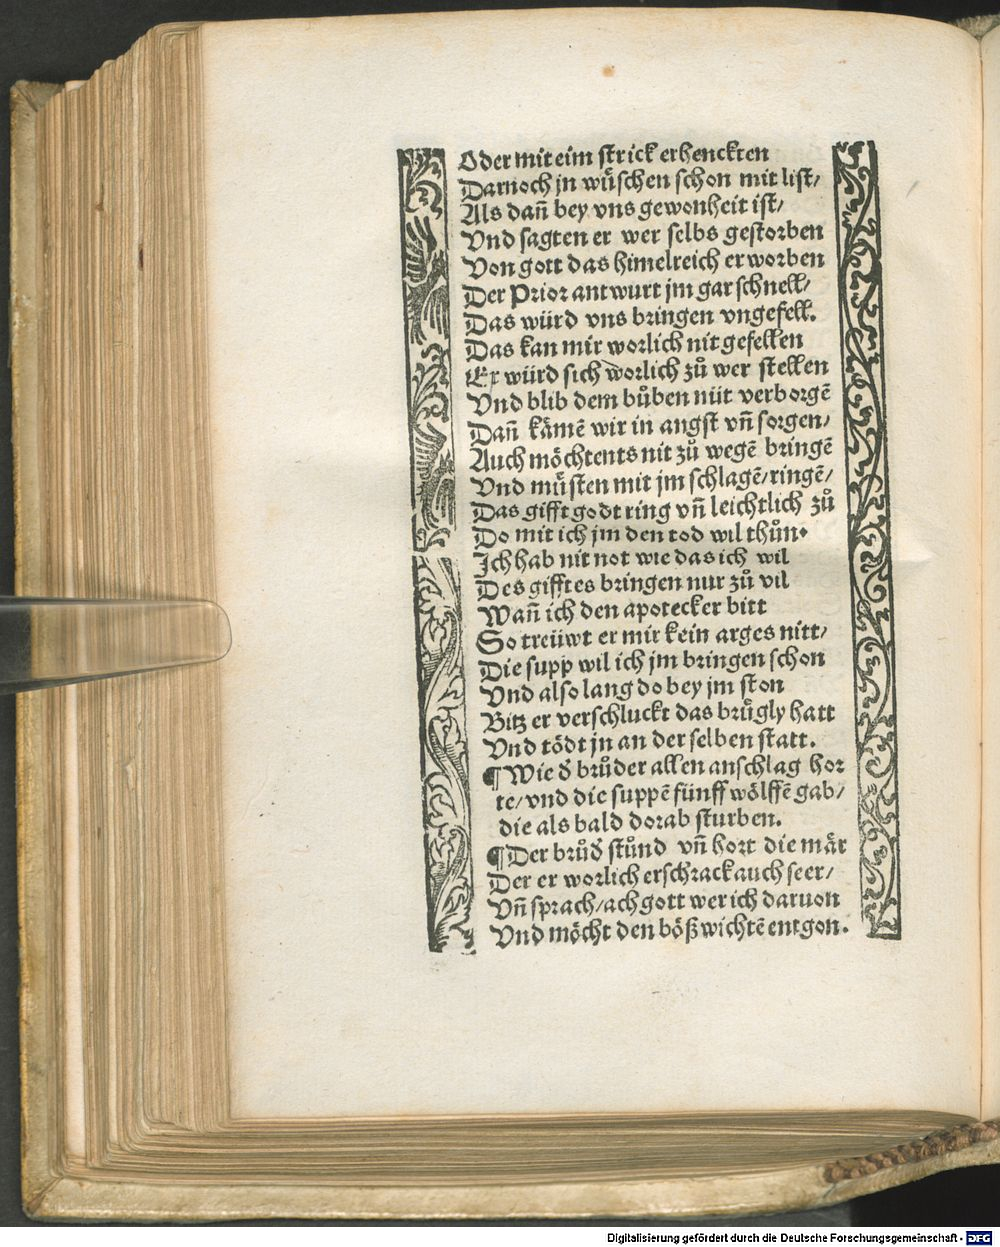 Oder mit eim strick erhenckten
Darnoch jn wuͤschen schon mit list/
Als dañ bey vns gewonheit ist/
Vnd sagten er wer selbs gestorben
Von gott das himelreich erworben
Der Prior antwurt jm gar schnell/
Das würd vns bringen vngefell.
Das kan mir worlich nit gefellen
Er würd sich worlich zů wer stellen
Vnd blib dem bůben nüt verborgē
Dañ kämē wir in angst vñ sorgen/
Auch möchtents nit zů wegē bringē
Vnd muͤsten mit jm schlagē/ringē/
Das gifft godt ring vñ leichtlich zů
Do mit ich jm den tod wil thůn.
Ich hab nit not wie das ich wil
Des gifftes bringen nur zů vil
Wañ ich den apotecker bitt
So treüwt er mir kein arges nitt/
Die supp wil ich jm bringen schon
Vnd also lang do bey jm ston
Bitz er verschluckt das bruͤgly hatt
Vnd tödt jn an der selben statt.
¶ Wie d̕ brůder allen anschlag hor
te/vnd die suppē fünff wölffē gab/
die als bald dorab sturben.
¶ Der brůd̕ stůnd vñ hort die mär
Der er worlich erschrack auch seer/
Vñ sprach/ach gott wer ich daruon
Vnd möcht den bößwichtē entgon.
Digitalisierung gefördert durch die Deutsche Forschungsgemeinschaft - DFG